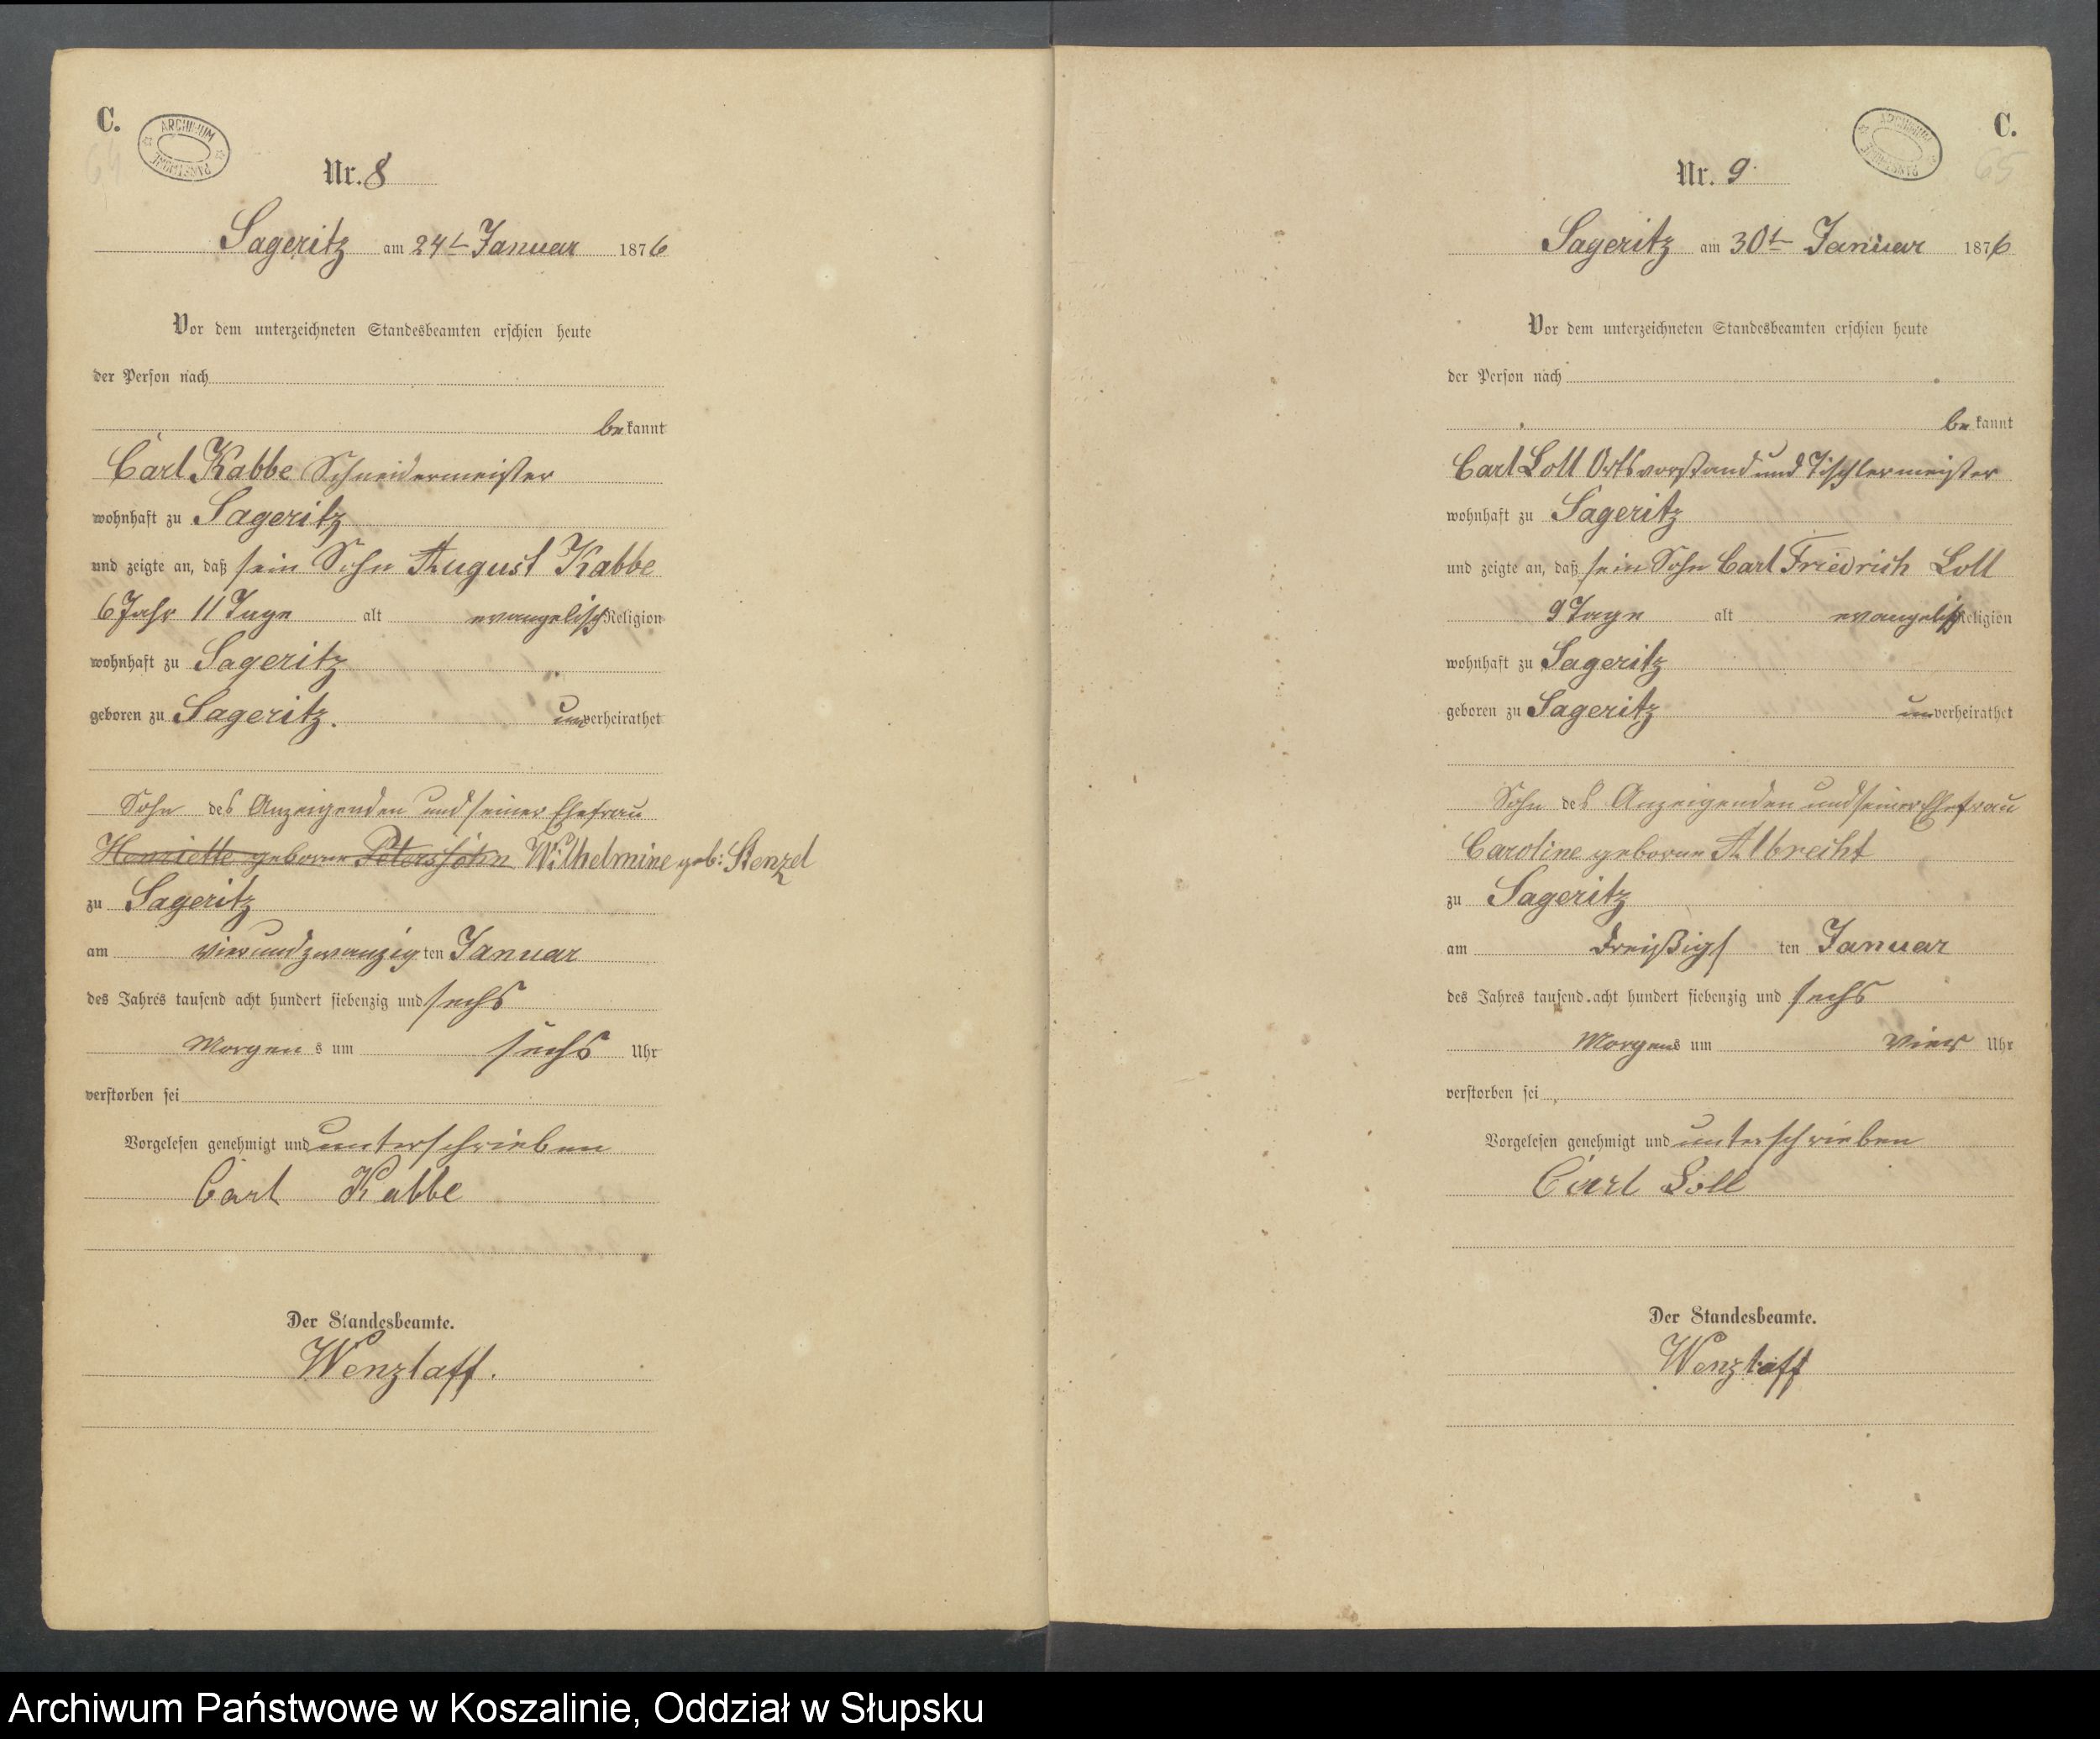 C.
ARCHIWUM PAŃSTWOWE
64
Nr. 8
Sageritz am 24t Januar 1876
Vor dem unterzeichneten Standesbeamten erschien heute
der Person nach
bekannt
Carl Kabbe Schneidermeister
wohnhaft zu Sageritz
und zeigte an, daß sein Sohn August Kabbe
6 Jahr 11 Tage alt evangelisch Religion
wohnhaft zu Sageritz
geboren zu Sageritz. unverheirathet
Sohn des Anzeigenden und seiner Ehefrau
Henriette geborne Peterssohn Wilhelmine geb: Stenzel
zu Sageritz
am vierundzwanzigten Januar
des Jahres tausend acht hundert siebenzig und sechs
Morgens um sechs Uhr
verstorben sei
Vorgelesen genehmigt und unterschrieben
Carl Kabbe
Der Standesbeamte.
Wenzlaff.
C.
ARCHIWUM PAŃSTWOWE
65
Nr. 9
Sageritz am 30t Januar 1876
Vor dem unterzeichneten Standesbeamten erschien heute
der Person nach
bekannt
Carl Loll Ortsvorstand und Tischlermeister
wohnhaft zu Sageritz
und zeigte an, daß sein Sohn Carl Friedrich Loll
9 Tage alt evangelisch Religion
wohnhaft zu Sageritz
geboren zu Sageritz unverheirathet
Sohn des Anzeigenden und seiner Ehefrau
Caroline geborne Albrecht
zu Sageritz
am dreißigsten Januar
des Jahres tausend acht hundert siebenzig und sechs
Morgens um vier Uhr
verstorben sei
Vorgelesen genehmigt und unterschrieben
Carl Loll
Der Standesbeamte.
Wenzlaff
Archiwum Państwowe w Koszalinie, Oddział w Słupsku